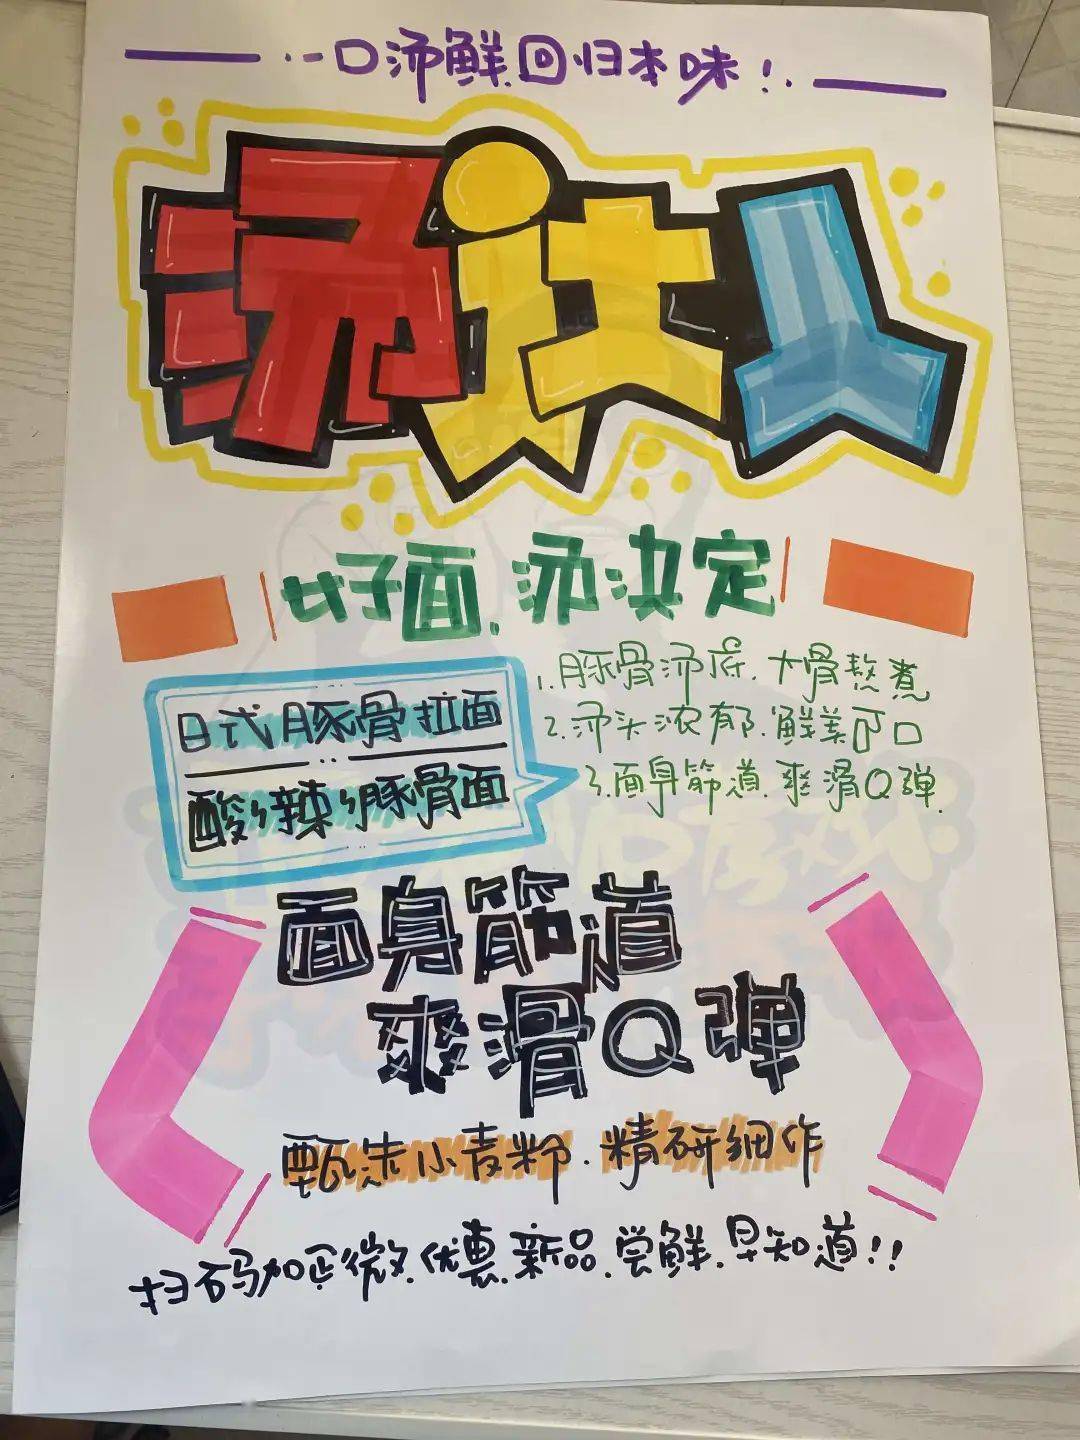 一口汤鲜回归本味!
汤达人
好面.汤决定
日式豚骨拉面
酸辣豚骨面
1.豚骨汤底.大骨熬煮
2.汤头浓郁.鲜美可口
3.面身筋道.爽滑Q弹.
面身筋道
爽滑Q弹
甄选小麦粉.精研细作
扫码加企微.优惠.新品.尝鲜.早知道!!